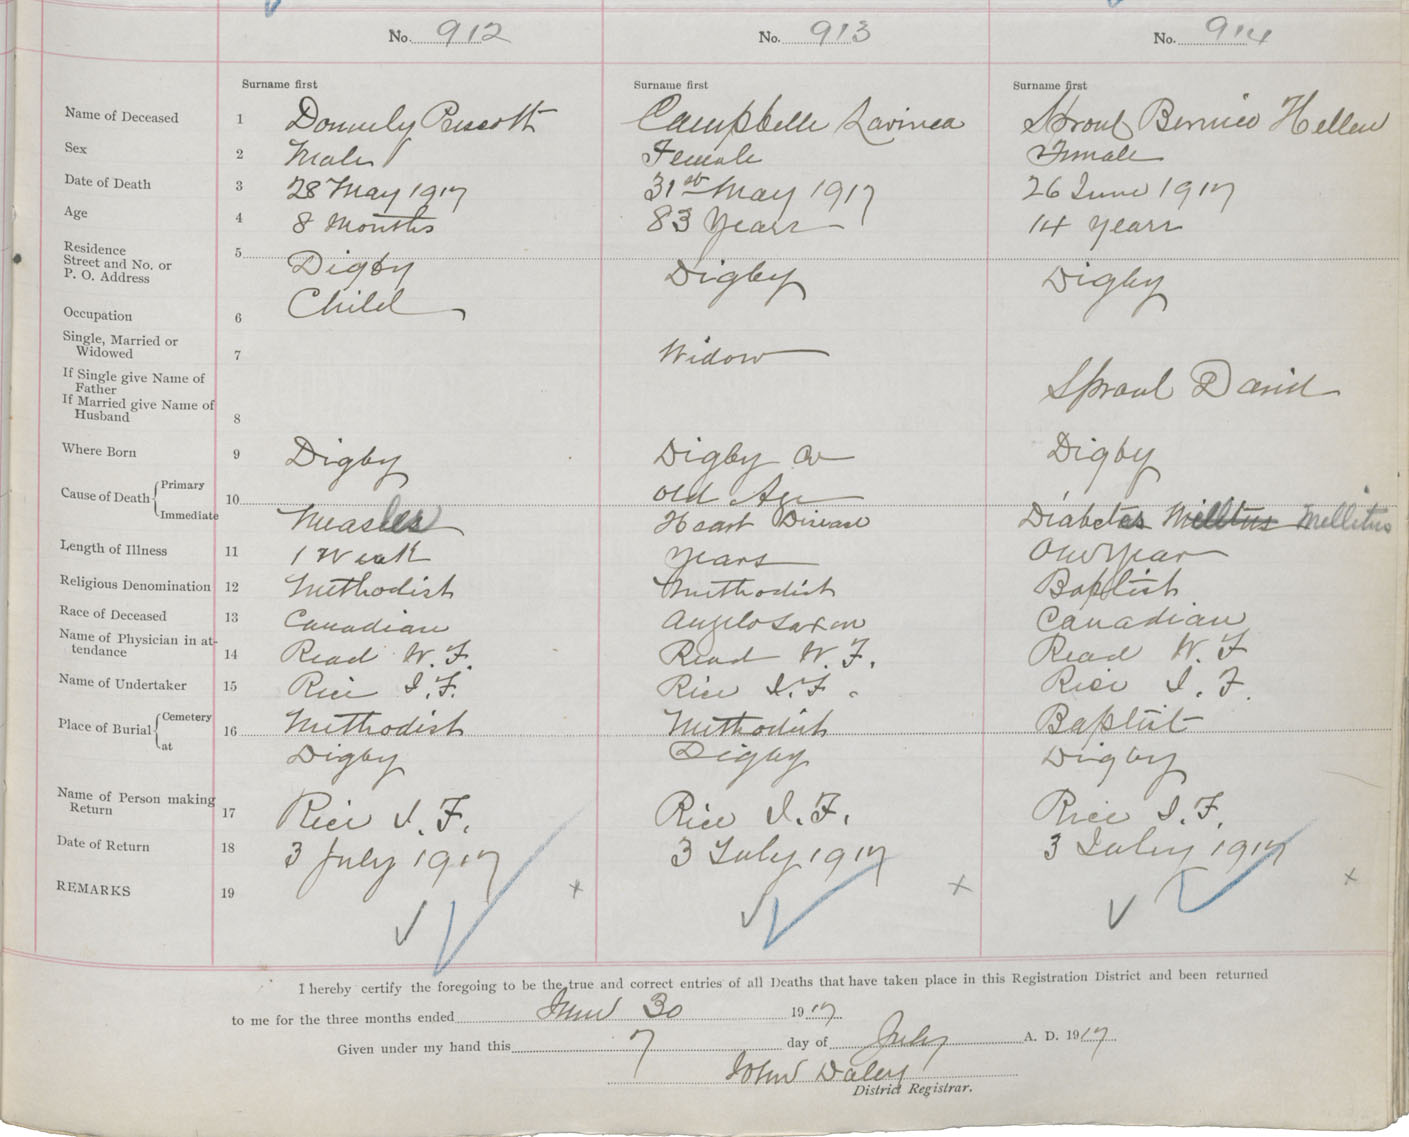 No. 912 No. 913 No. 914
Surname first Surname first Surname first
Name of Deceased 1 Donnely Prescott Campbelle Lavinea Sproul Bernice Hellen
Sex 2 Male Female Female
Date of Death 3 28 May 1917 31st May 1917 26 June 1917
Age 4 8 Months 83 Years 14 years
Residence
Street and No. or
P. O. Address 5 Digby Digby Digby
Occupation 6 Child
Single, Married or
Widowed 7 Widow
If Single give Name of
Father
If Married give Name of
Husband 8 Sproul David
Where Born 9 Digby Digby Co Digby
Cause of Death Primary 10 old Age
Immediate Measles Heart Disease Diabetes Mellitus
Length of Illness 11 1 Week years One year
Religious Denomination 12 Methodist Methodist Baptist
Race of Deceased 13 Canadian Anglo Saxon Canadian
Name of Physician in at-
tendance 14 Read W. F. Read W. F. Read W. F
Name of Undertaker 15 Rice I. F. Rice I. F. Rice I. F.
Place of Burial Cemetery 16 Methodist Methodist Baptist
at Digby Digby Digby
Name of Person making
Return 17 Rice I. F. Rice I. F. Rice I. F.
Date of Return 18 3 July 1917 3 July 1917 3 July 1917
REMARKS 19
I hereby certify the foregoing to be the true and correct entries of all Deaths that have taken place in this Registration District and been returned
to me for the three months ended June 30 1917
Given under my hand this 7 day of July A. D. 1917
John Daley
District Registrar.